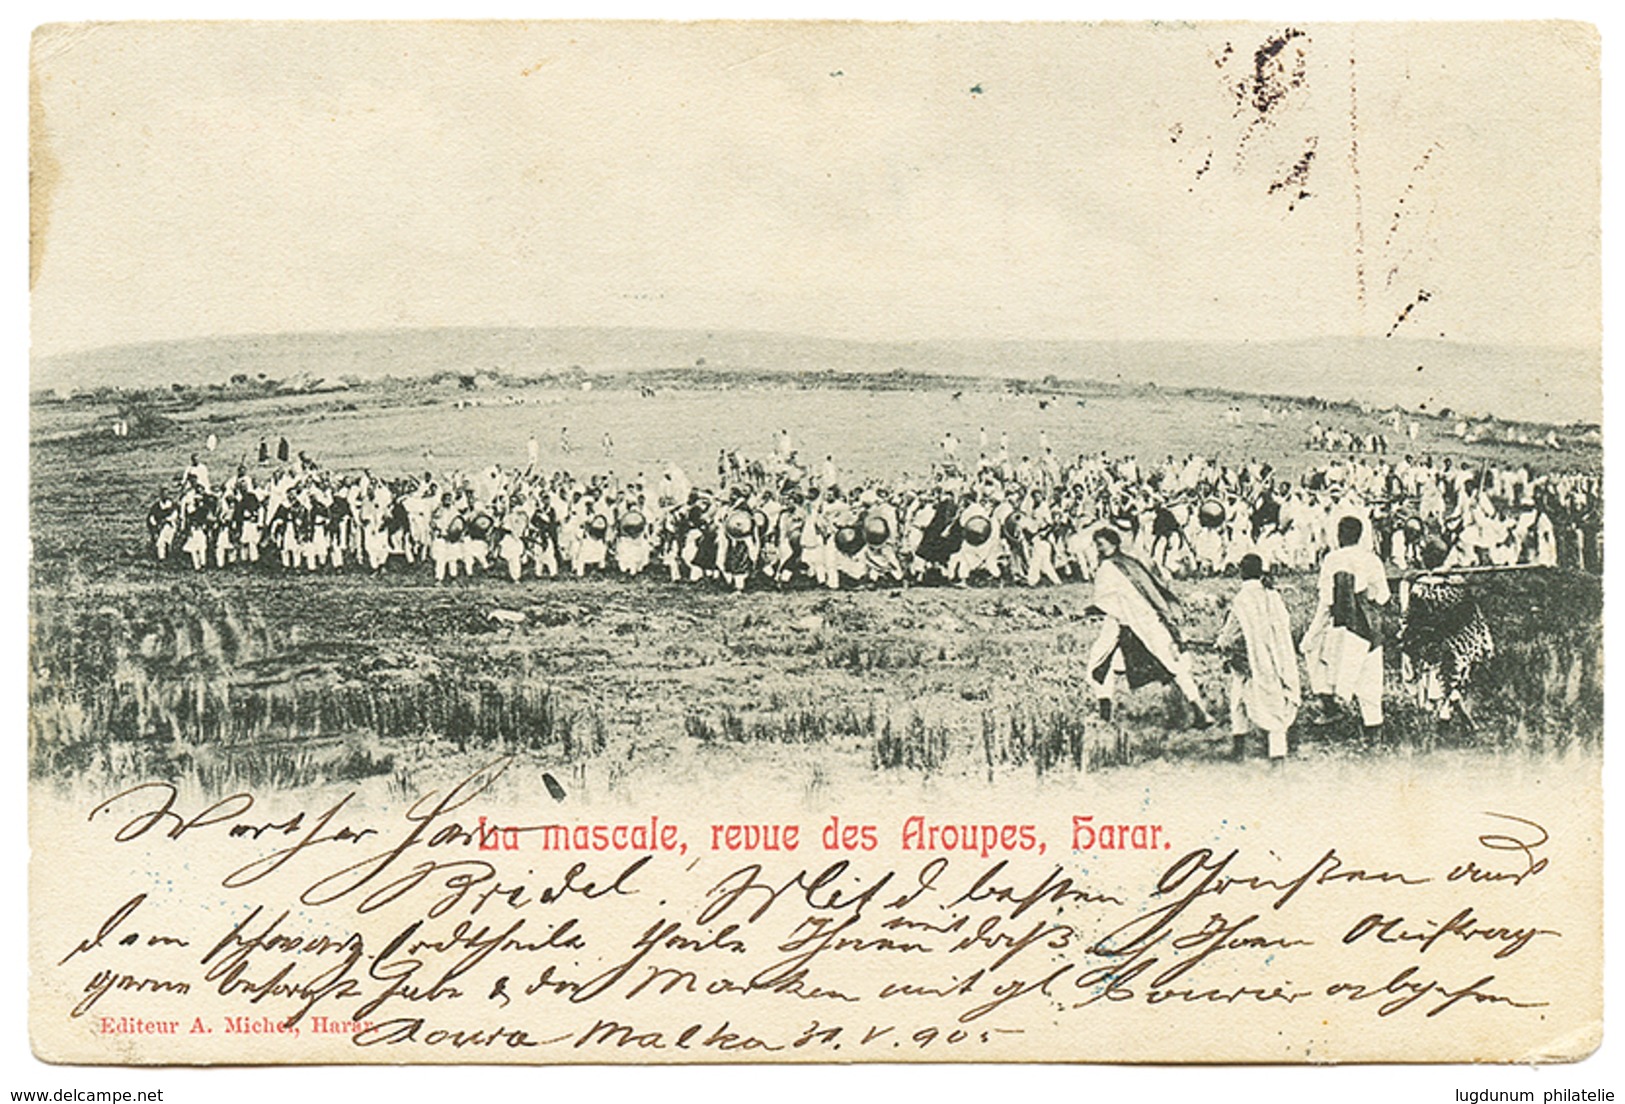 Werther Herr
La mascale, revue des Aroupes, Harar.
Bridel! Mit d. besten Grüßen aus
dem schwarz. Erdtheile theile Ihnen mit daß Ihren Auftrag
gerne besorgt habe & die Marken mit gl. Courier abgehen
Editeur A. Michel, Harar.
Malka 31. V. 905
delcampe.net
lugdunum philatelie